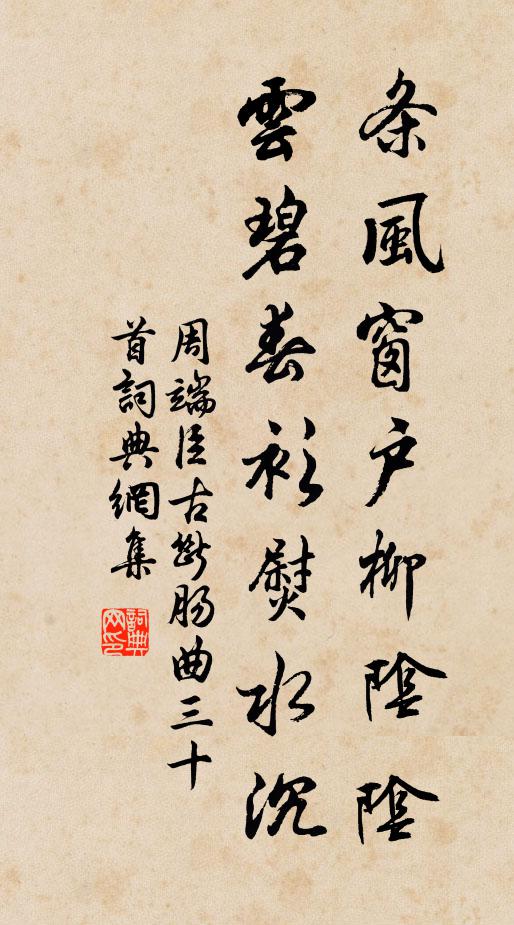 条風窗户柳陰陰
雲碧春衫熨水沉
周端臣古断肠曲三十
首詞典網集
詞典網印